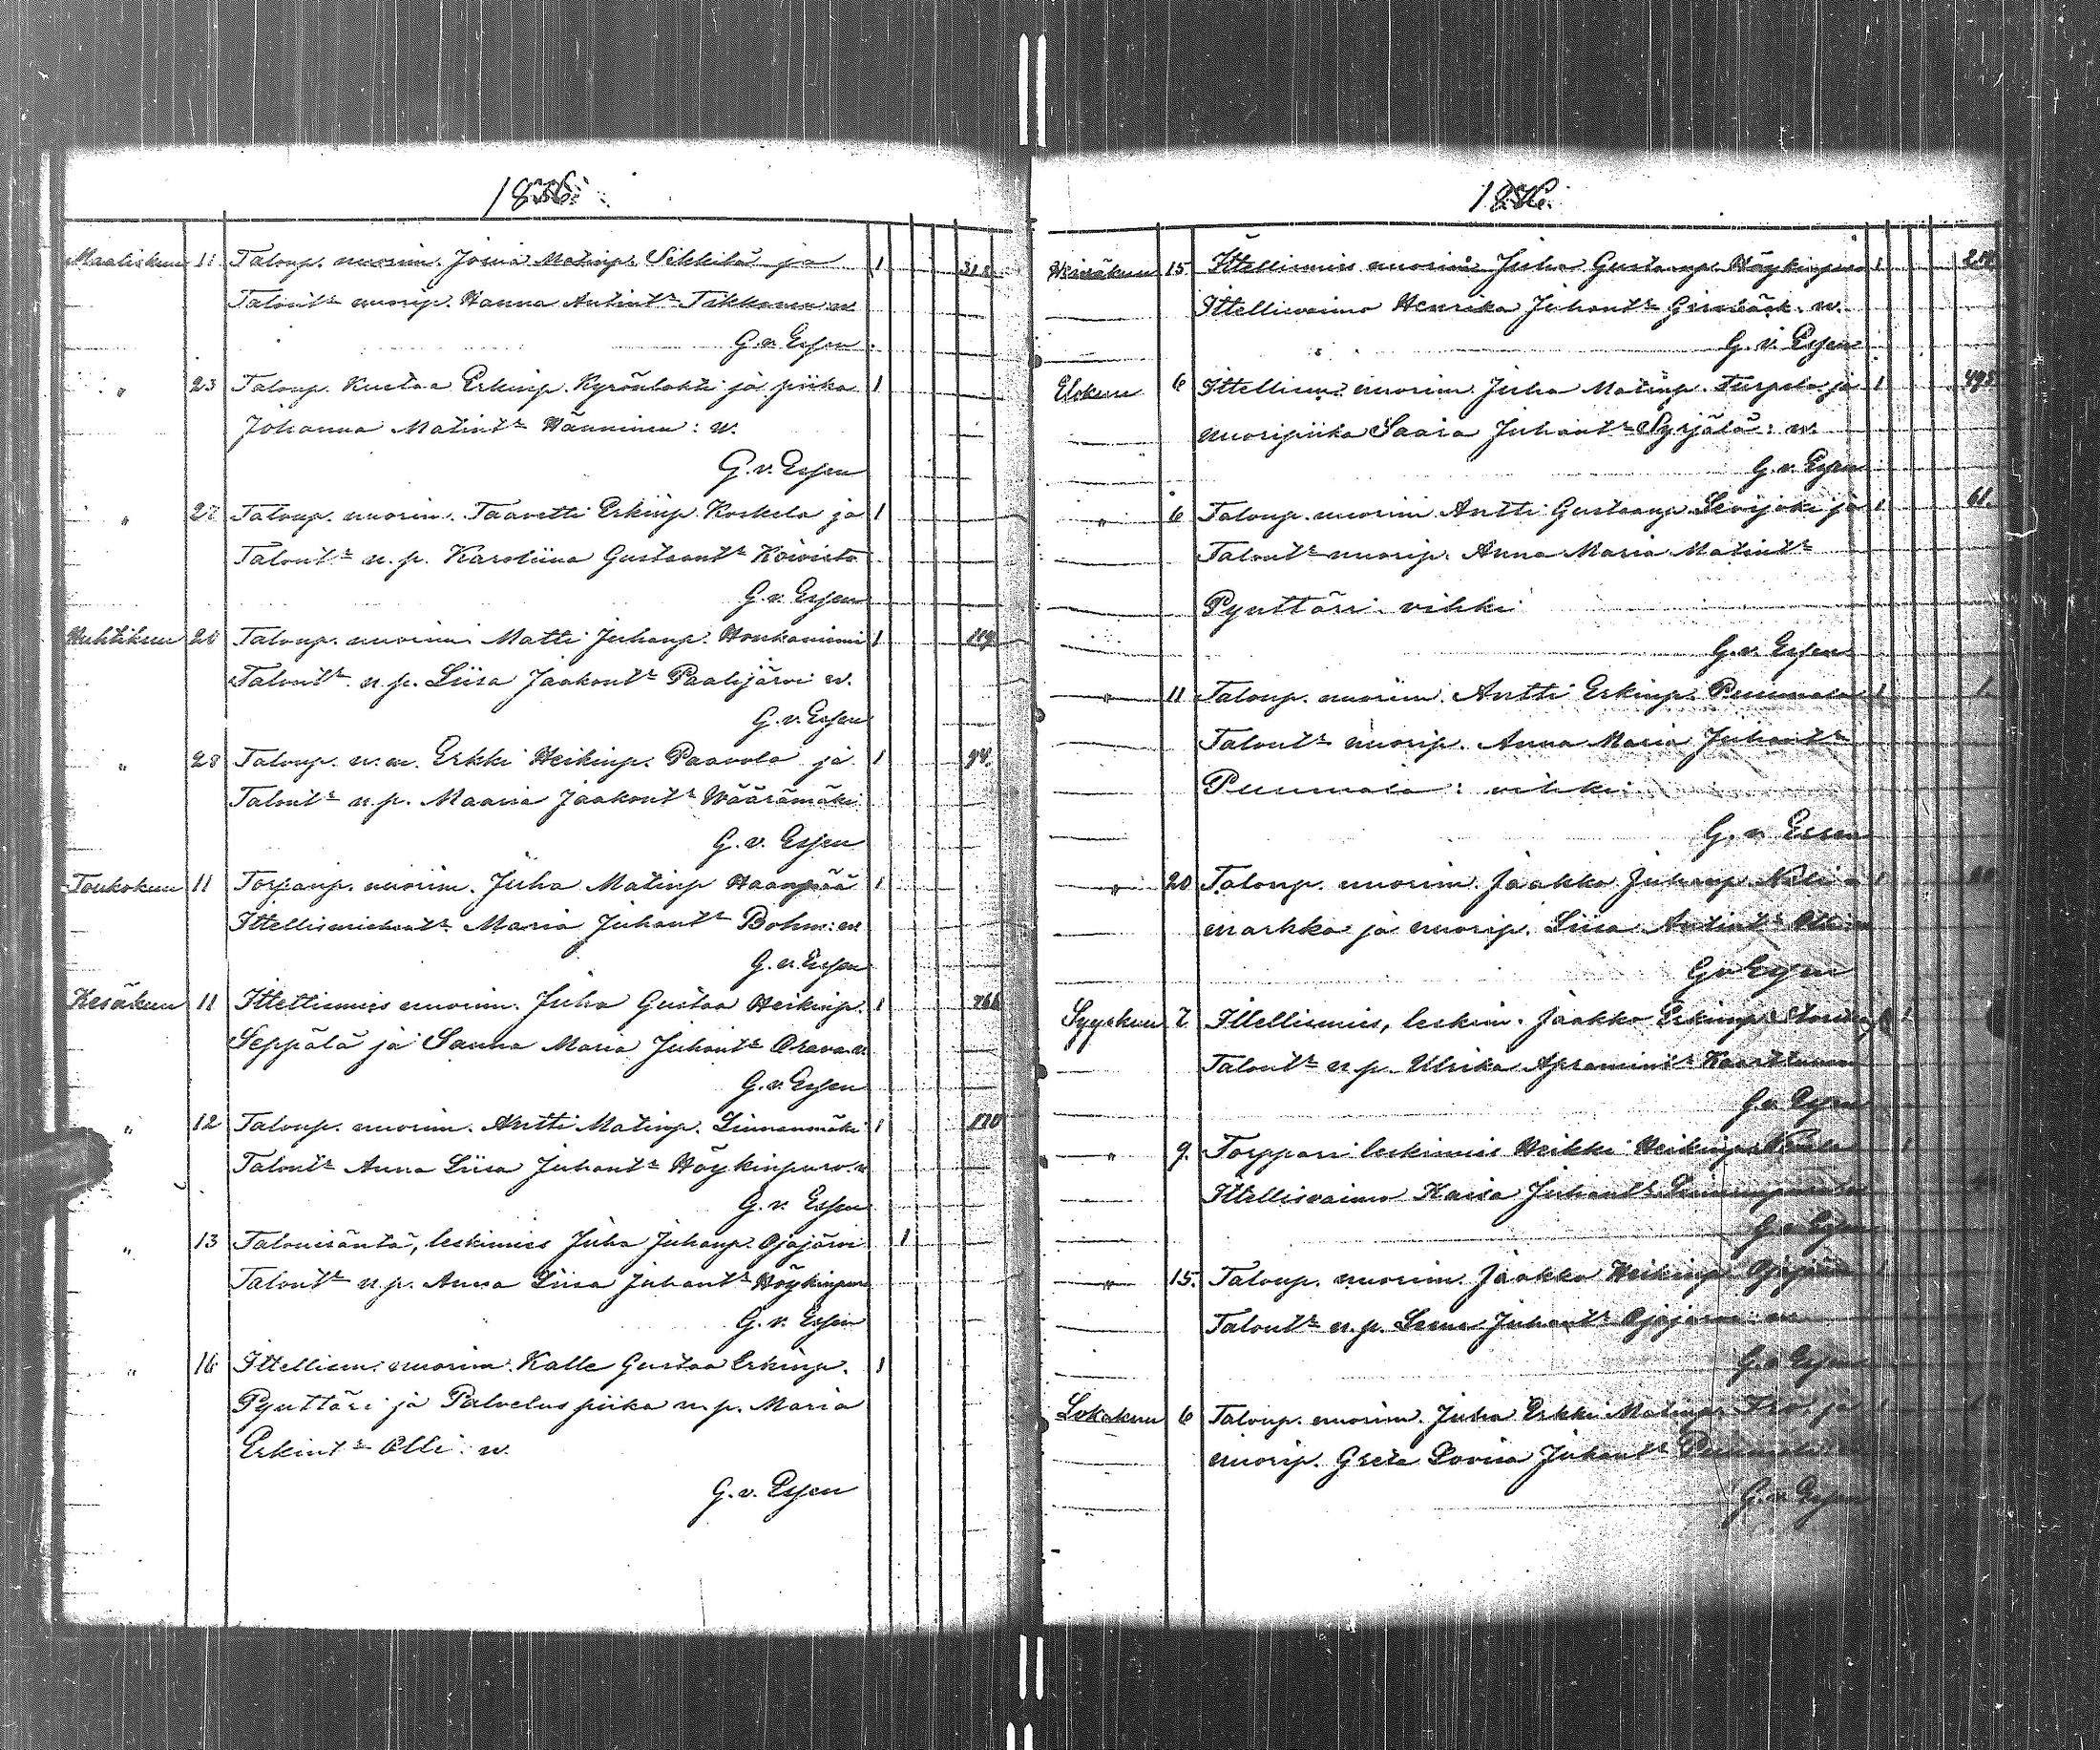 1886.
Maaliskuu 11 Taloup. nuorim. Josua Matinp. Sikkilä ja 1
Talont:r nuorip. Hanna Antint:r Tikkanen w.
G. v. Essen
" 23 Taloup. Kustaa Erkinp. Kyrönlahti ja piika 1
Johanna Matint:r Hänninen: w.
G. v. Essen
" 27 Taloup. nuorim. Taavetti Erkinp. Koskela ja 1
Talont:r n.p. Karoliina Gustaant:r Koivisto
G. v. Essen
Huhtikuu 26 Taloup. nuorim. Matti Juhanp. Honkaniemi 1 119
Talont:r n.p. Liisa Jaakont:r Paalijärvi w.
G. v. Essen
" 28 Taloup. n.m. Erkki Heikinp. Paavola ja 1 94.
Talont:r n.p. Maaria Jaakont:r Wäärämäki
G. v. Essen
Toukokuu 11 Torpanp. nuorim. Juha Matinp Haanpää 1
Ittellismiehent:r Maria Juhant:r Bohm: w
G. v. Essen
Kesäkuu 11 Ittellismies nuorim. Juha Gustaa Heikinp. 1 266
Seppälä ja Sanna Maria Juhant:r Orava w.
G. v. Essen
" 12 Taloup. nuorim. Antti Matinp. Linnanmäki 1 170
Talont:r Anna Liisa Juhant:r Höykinpuro. w
G. v. Essen
" 13 Talonisäntä, leskimies Juha Juhanp. Ojajärvi 1
Talont:r n.p. Anna Liisa Juhant:r Höykinpuro
G. v. Essen
" 16 Ittellism. nuorim. Kalle Gustaa Erkinp. 1
Pynttäri ja Palvelus piika n.p. Maria
Erkint:r Olli: w.
G. v. Essen
1886.
Heinäkuu 15 Ittellismies nuorim. Juha Gustaanp. Höykinpuro 1
Ittellisvaimo Henrika Juhant:r w.
G. v. Essen
Elokuu 6 Ittellism. nuorim. Juha Matinp. Turpela ja 1 495
nuoripiika Saara Juhant:r Syrjälä: w.
G. v. Essen
" 6 Taloup. nuorim Antti Gustaanp. Levijoki ja 1 61.
Talont:r nuorip. Anna Maria Matint:r
Pynttäri vihki
G. v. Essen
" 11 Taloup. nuorim. Antti Erkinp. Puumala 1 1.
Talont:r nuorip. Anna Maria Juhant:r
Puumala: vihki
G. v. Essen
" 20 Taloup. nuorim. Jaakko Juhanp. 1
markka ja nuorip. Liisa Antint:r
G v Essen
Syyskuu 7 Ittellismies, leskim. Jaakko Erkinp. 1
Talont:r n.p. Ulrika Apramint:r Kaarttunen
G. v. Essen
" 9. Torppari leskimies Heikki Heikinp. 1
Ittellisvaimo Kaisa Juhant:r
G. v. Essen
" 15. Taloup. nuorim. Jaakko Heikinp. Ojajärvi 1
Talont:r n.p. Juhant:r Ojajärvi w
G. v. Essen
Lokakuu 6 Taloup. nuorim. Juha Erkki Matinp. ja 1
nuorip. Greta Lovisa Juhant:r Puumala
G. v. Essen